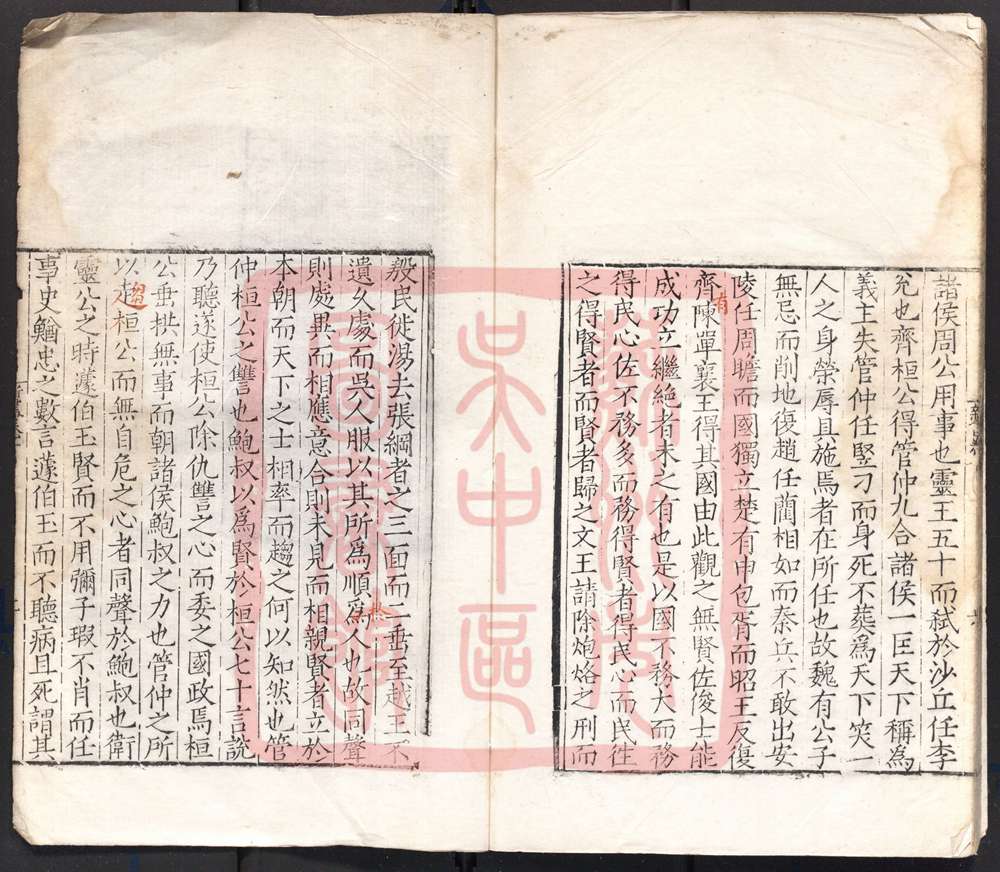 諸侯周公用事也靈王五十而弑於沙丘任李
兊也齊桓公得管仲九合諸侯一匡天下稱為
義王失管仲任竪刁而身死不葬爲天下笑一
人之身榮辱具施焉者在所任也故魏有公子
無忌而削地復趙任藺相如而秦兵不敢出安
陵任周瞻而國獨立楚有申包胥而昭王反復
齊陳單襄王得其國由此觀之無賢佐俊士能
有
成功立繼絶者未之有也是以國不務大而務
得民心佐不務多而務得賢者得民心而民徃
之得賢者而賢者歸之文王請除炮烙之刑而
殺民徙湯去張綱者之三面而二垂至越王不
遺久處而吳人服以其所爲順爲人也故同聲
則處異而相應意合則未見而相親賢者立於
本朝而天下之士相率而趨之何以知然也管
仲桓公之讐也鮑叔以爲賢於桓公七十言說
乃聽遂使桓公除仇讐之心而委之國政焉桓
公垂拱無事而朝諸侯鮑叔之力也管仲之所
以趨桓公而無自危之心者同聲於鮑叔也衛
靈公之時蘧伯玉賢而不用彌子瑕不肖而任
事史鰌忠之數言蘧伯玉而不聽病且死謂其
蘇州市
吳中區
圖書館